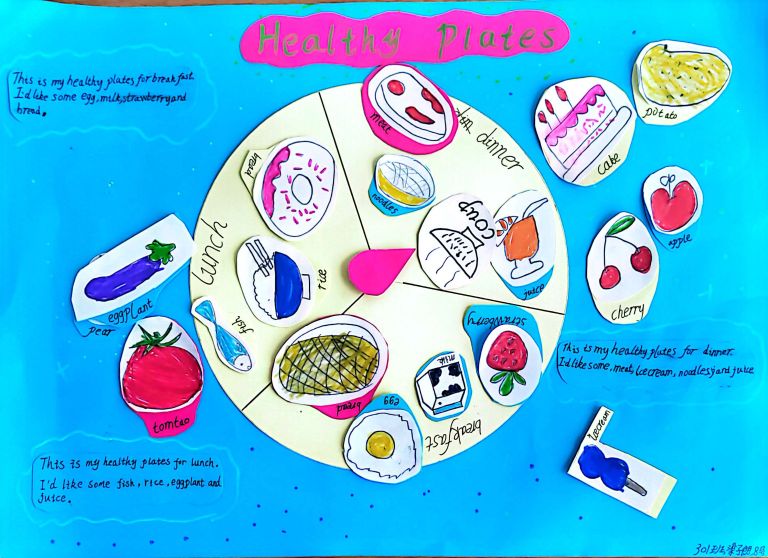 Healthy Plates
This is my healthy plates for breakfast.
I'd like some egg, milk, strawberry and
bread.
meat
dinner
noodles
soup
juice
cake
potato
apple
cherry
bread
lunch
rice
fish
eggplant
pear
tomtao
bread
egg
milk
strawberry
breakfast
This is my healthy plates for dinner.
I'd like some, meat, icecream, noodles, and juice
icecream
This is my healthy plates for lunch.
I'd like some fish, rice, eggplant and
juice.